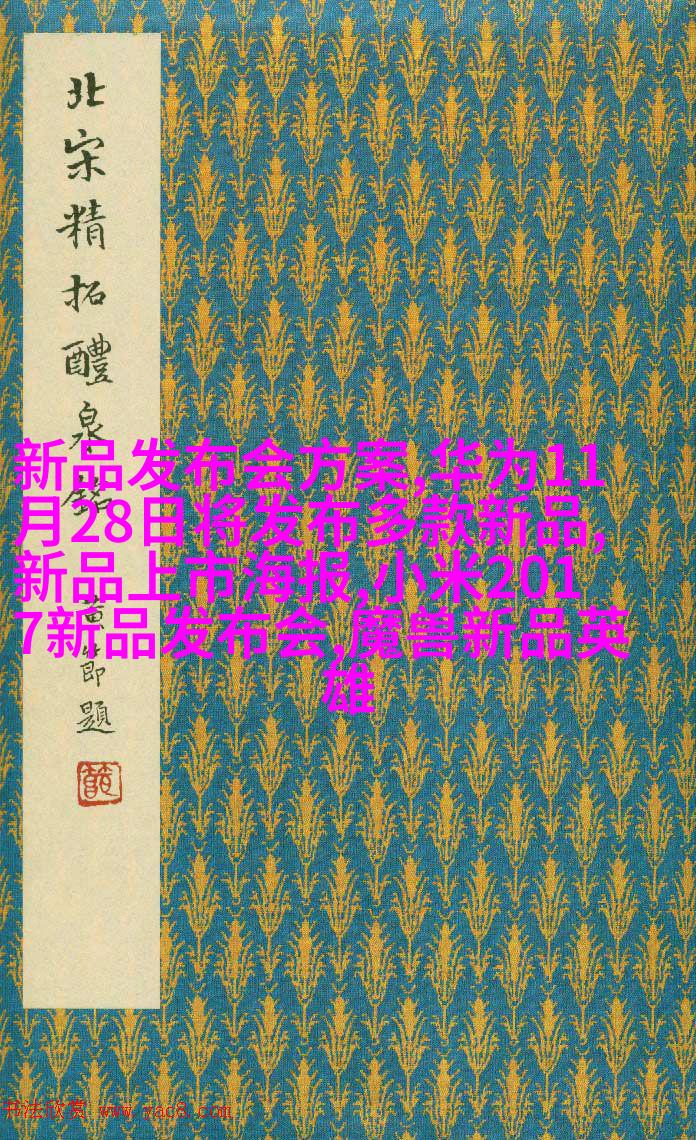 北宋精拓醴泉銘
黄節題
新品发布会方案,华为11
月28日将发布多款新品,
新品上市海报,小米201
7新品发布会,魔兽新品英
雄
书法欣赏 www.yac8.com